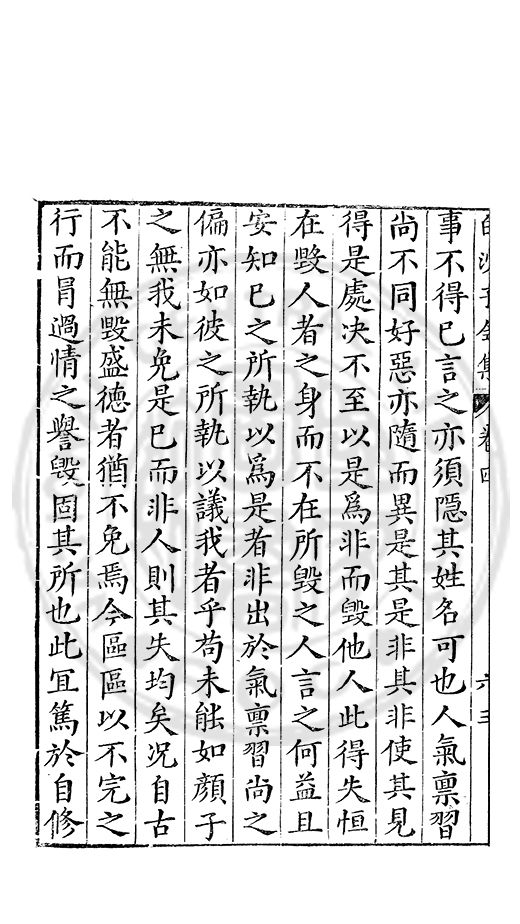 白沙子全集 卷四 六三
事不得已言之亦須隱其姓名可也人氣禀習
尚不同好惡亦隨而異是其是非其非使其見
得是處决不至以是爲非而毀他人此得失恒
在毀人者之身而不在所毀之人言之何益且
安知已之所執以爲是者非出於氣禀習尚之
偏亦如彼之所執以議我者乎苟未能如顔子
之無我未免是已而非人則其失均矣况自古
不能無毀盛德者猶不免焉今區區以不完之
行而冐過情之譽毀固其所也此宜篤於自修